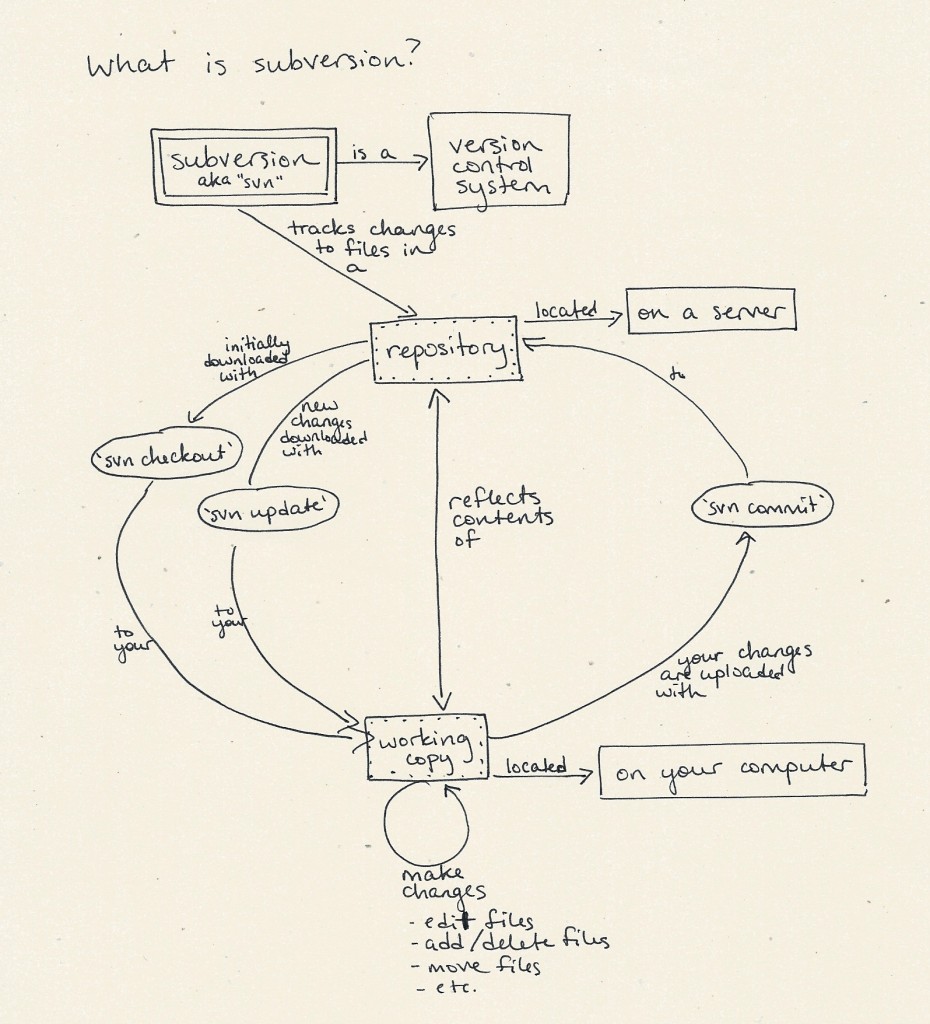 What is subversion?
subversion
aka "svn"
is a
version
control
system
tracks changes
to files in
a
repository
located
on a server
initially
downloaded
with
new
changes
downloaded
with
to
'svn checkout'
'svn update'
reflects
contents
of
'svn commit'
to
your
to
your
your changes
are uploaded
with
working
copy
located
on your computer
make
changes
- edit files
- add/delete files
- move files
- etc.